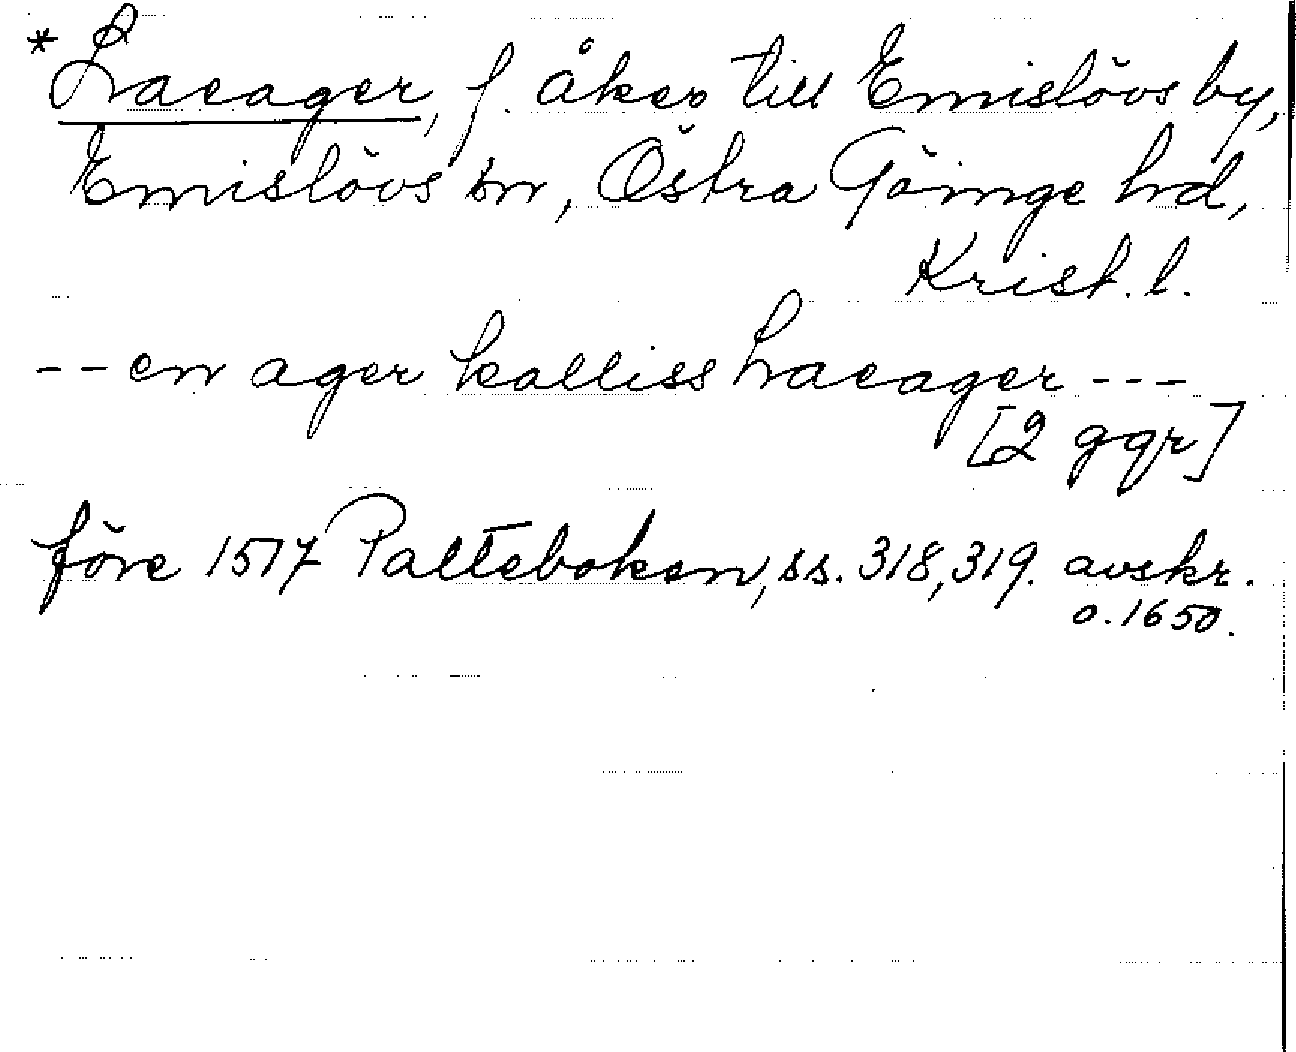 *Hacager, f. åker till Emislövs by,
Emislövs sn, Östra Göinge hd,
Krist. l.
-- en ager kalliss hacager ---
[2 ggr]
före 1517 Palteboken, ss. 318, 319. avskr.
o. 1650.